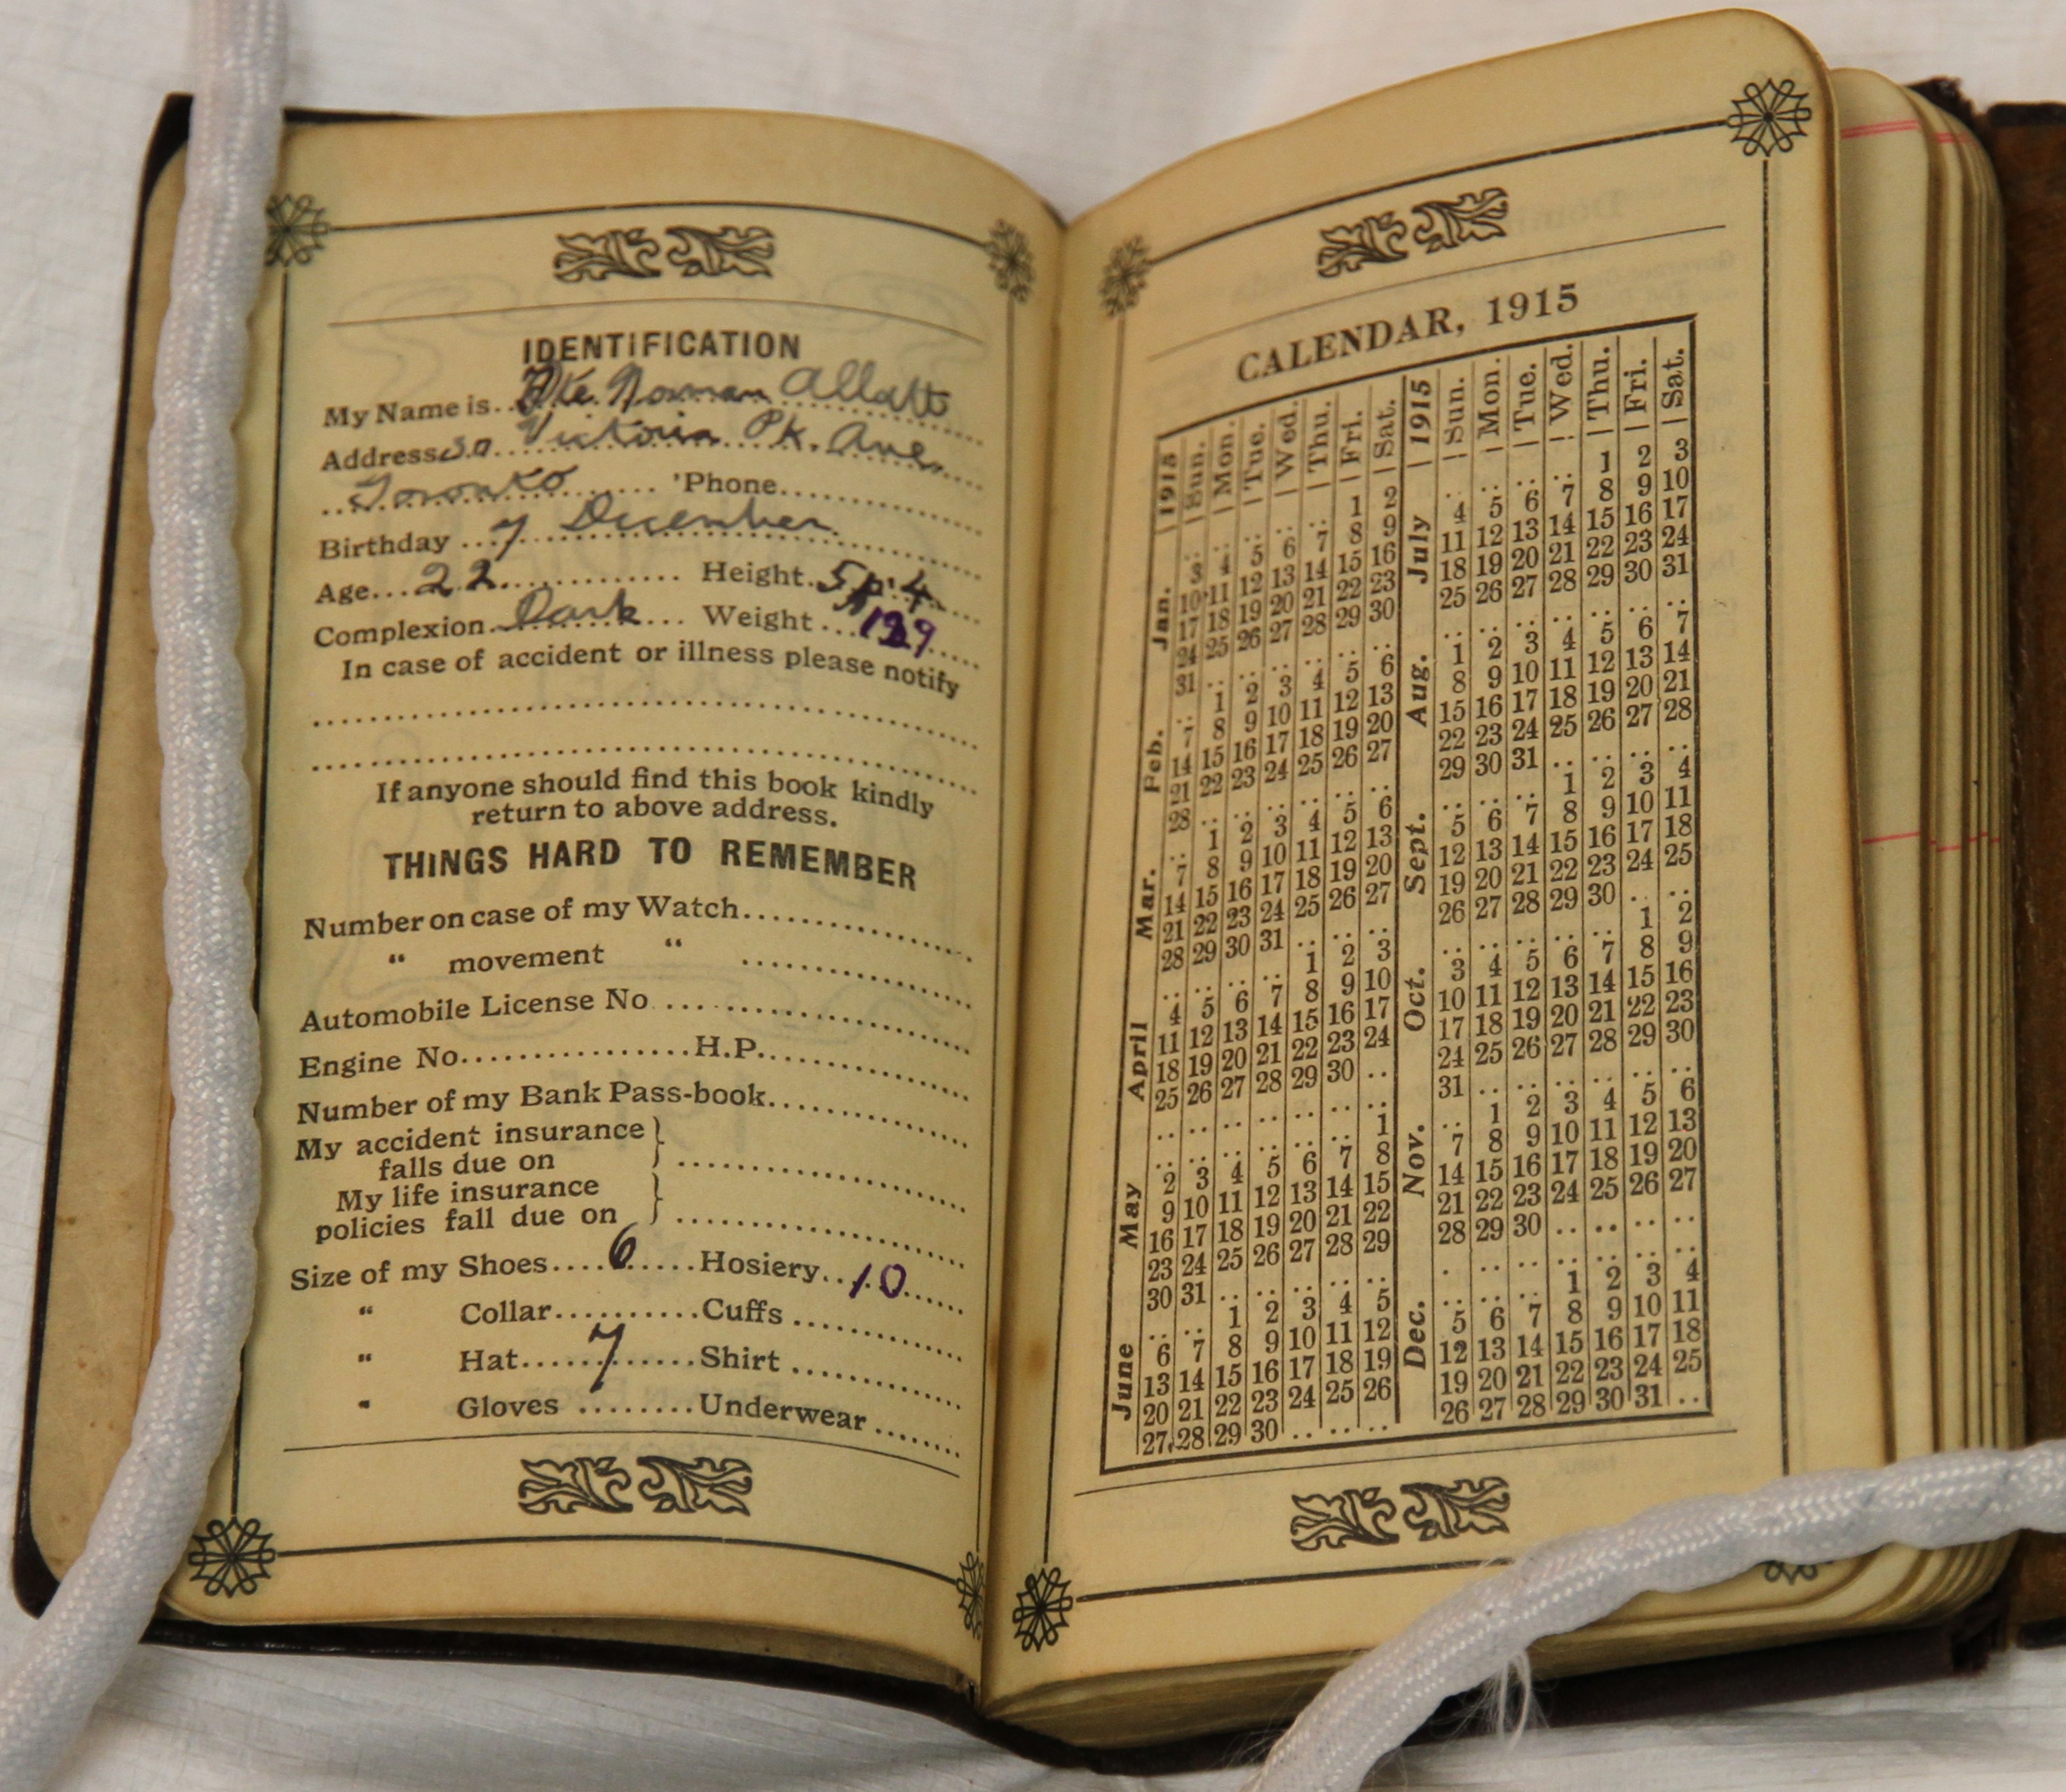 IDENTIFICATION
My Name is Pte. Norman Allatt
Address Victoria Pk. Ave.
Toronto 'Phone
Birthday 7 December
Age 22 Height 5 ft 4
Complexion Dark Weight 139
In case of accident or illness please notify
If anyone should find this book kindly
return to above address.
THINGS HARD TO REMEMBER
Number on case of my Watch
“ movement “
Automobile License No
Engine No. H.P.
Number of my Bank Pass-book
My accident insurance
falls due on
My life insurance
policies fall due on
Size of my Shoes 6 Hosiery 10
“ Collar Cuffs
“ Hat 7 Shirt
“ Gloves Underwear
CALENDAR, 1915
1915 Sun. Mon. Tue. Wed. Thu. Fri. Sat.
Jan. 1 2
3 4 5 6 7 8 9
10 11 12 13 14 15 16
17 18 19 20 21 22 23
24 25 26 27 28 29 30
31
Feb. 1 2 3 4 5 6
7 8 9 10 11 12 13
14 15 16 17 18 19 20
21 22 23 24 25 26 27
28
Mar. 1 2 3 4 5 6
7 8 9 10 11 12 13
14 15 16 17 18 19 20
21 22 23 24 25 26 27
28 29 30 31
April 1 2 3
4 5 6 7 8 9 10
11 12 13 14 15 16 17
18 19 20 21 22 23 24
25 26 27 28 29 30
May 1
2 3 4 5 6 7 8
9 10 11 12 13 14 15
16 17 18 19 20 21 22
23 24 25 26 27 28 29
30 31
June 1 2 3 4 5
6 7 8 9 10 11 12
13 14 15 16 17 18 19
20 21 22 23 24 25 26
27 28 29 30
1915 Sun. Mon. Tue. Wed. Thu. Fri. Sat.
July 1 2 3
4 5 6 7 8 9 10
11 12 13 14 15 16 17
18 19 20 21 22 23 24
25 26 27 28 29 30 31
Aug. 1 2 3 4 5 6 7
8 9 10 11 12 13 14
15 16 17 18 19 20 21
22 23 24 25 26 27 28
29 30 31
Sept. 1 2 3 4
5 6 7 8 9 10 11
12 13 14 15 16 17 18
19 20 21 22 23 24 25
26 27 28 29 30
Oct. 1 2
3 4 5 6 7 8 9
10 11 12 13 14 15 16
17 18 19 20 21 22 23
24 25 26 27 28 29 30
31
Nov. 1 2 3 4 5 6
7 8 9 10 11 12 13
14 15 16 17 18 19 20
21 22 23 24 25 26 27
28 29 30
Dec. 1 2 3 4
5 6 7 8 9 10 11
12 13 14 15 16 17 18
19 20 21 22 23 24 25
26 27 28 29 30 31